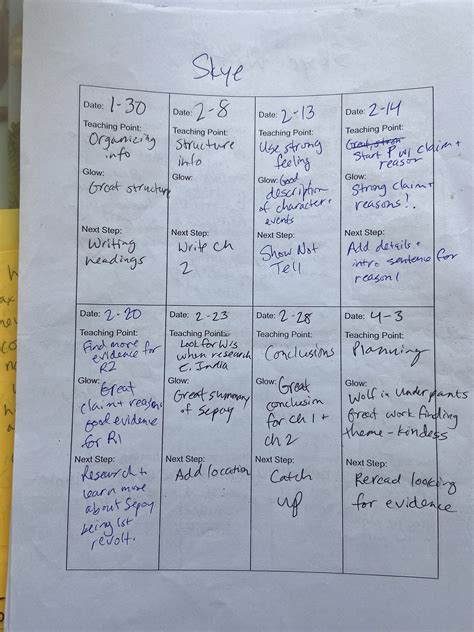 Skye
Date: 1-30
Teaching Point:
Organizing
info
Glow:
Great structure
Next Step:
Writing
headings
Date: 2-8
Teaching Point:
Structure
info
Glow:
Next Step:
Write Ch
2
Date: 2-13
Teaching Point:
Use strong
feeling
Glow: Good
description
of character +
events
Next Step:
Show Not
Tell
Date: 2-14
Teaching Point:
Great, strong
Start claim +
reason
Glow:
Strong claim +
reasons!
Next Step:
Add details +
intro sentence for
reason 1
Date: 2-20
Teaching Point:
Find more
evidence for
R2
Glow:
Great
claim + reasons
good evidence
for R1
Next Step:
Research +
learn more
about Sepoy
being 1st
revolt.
Date: 2-23
Teaching Point:
Look for W's
when research
E. India
Glow:
Great summary
of Sepoy
Next Step:
Add location
Date: 2-28
Teaching Point:
Conclusions
Glow:
Great
conclusion
for ch 1 +
ch 2
Next Step:
Catch
up
Date: 4-3
Teaching Point:
Planning
Glow:
Wolf in Underpants
Great work finding
theme - kindess
Next Step:
Reread looking
for evidence